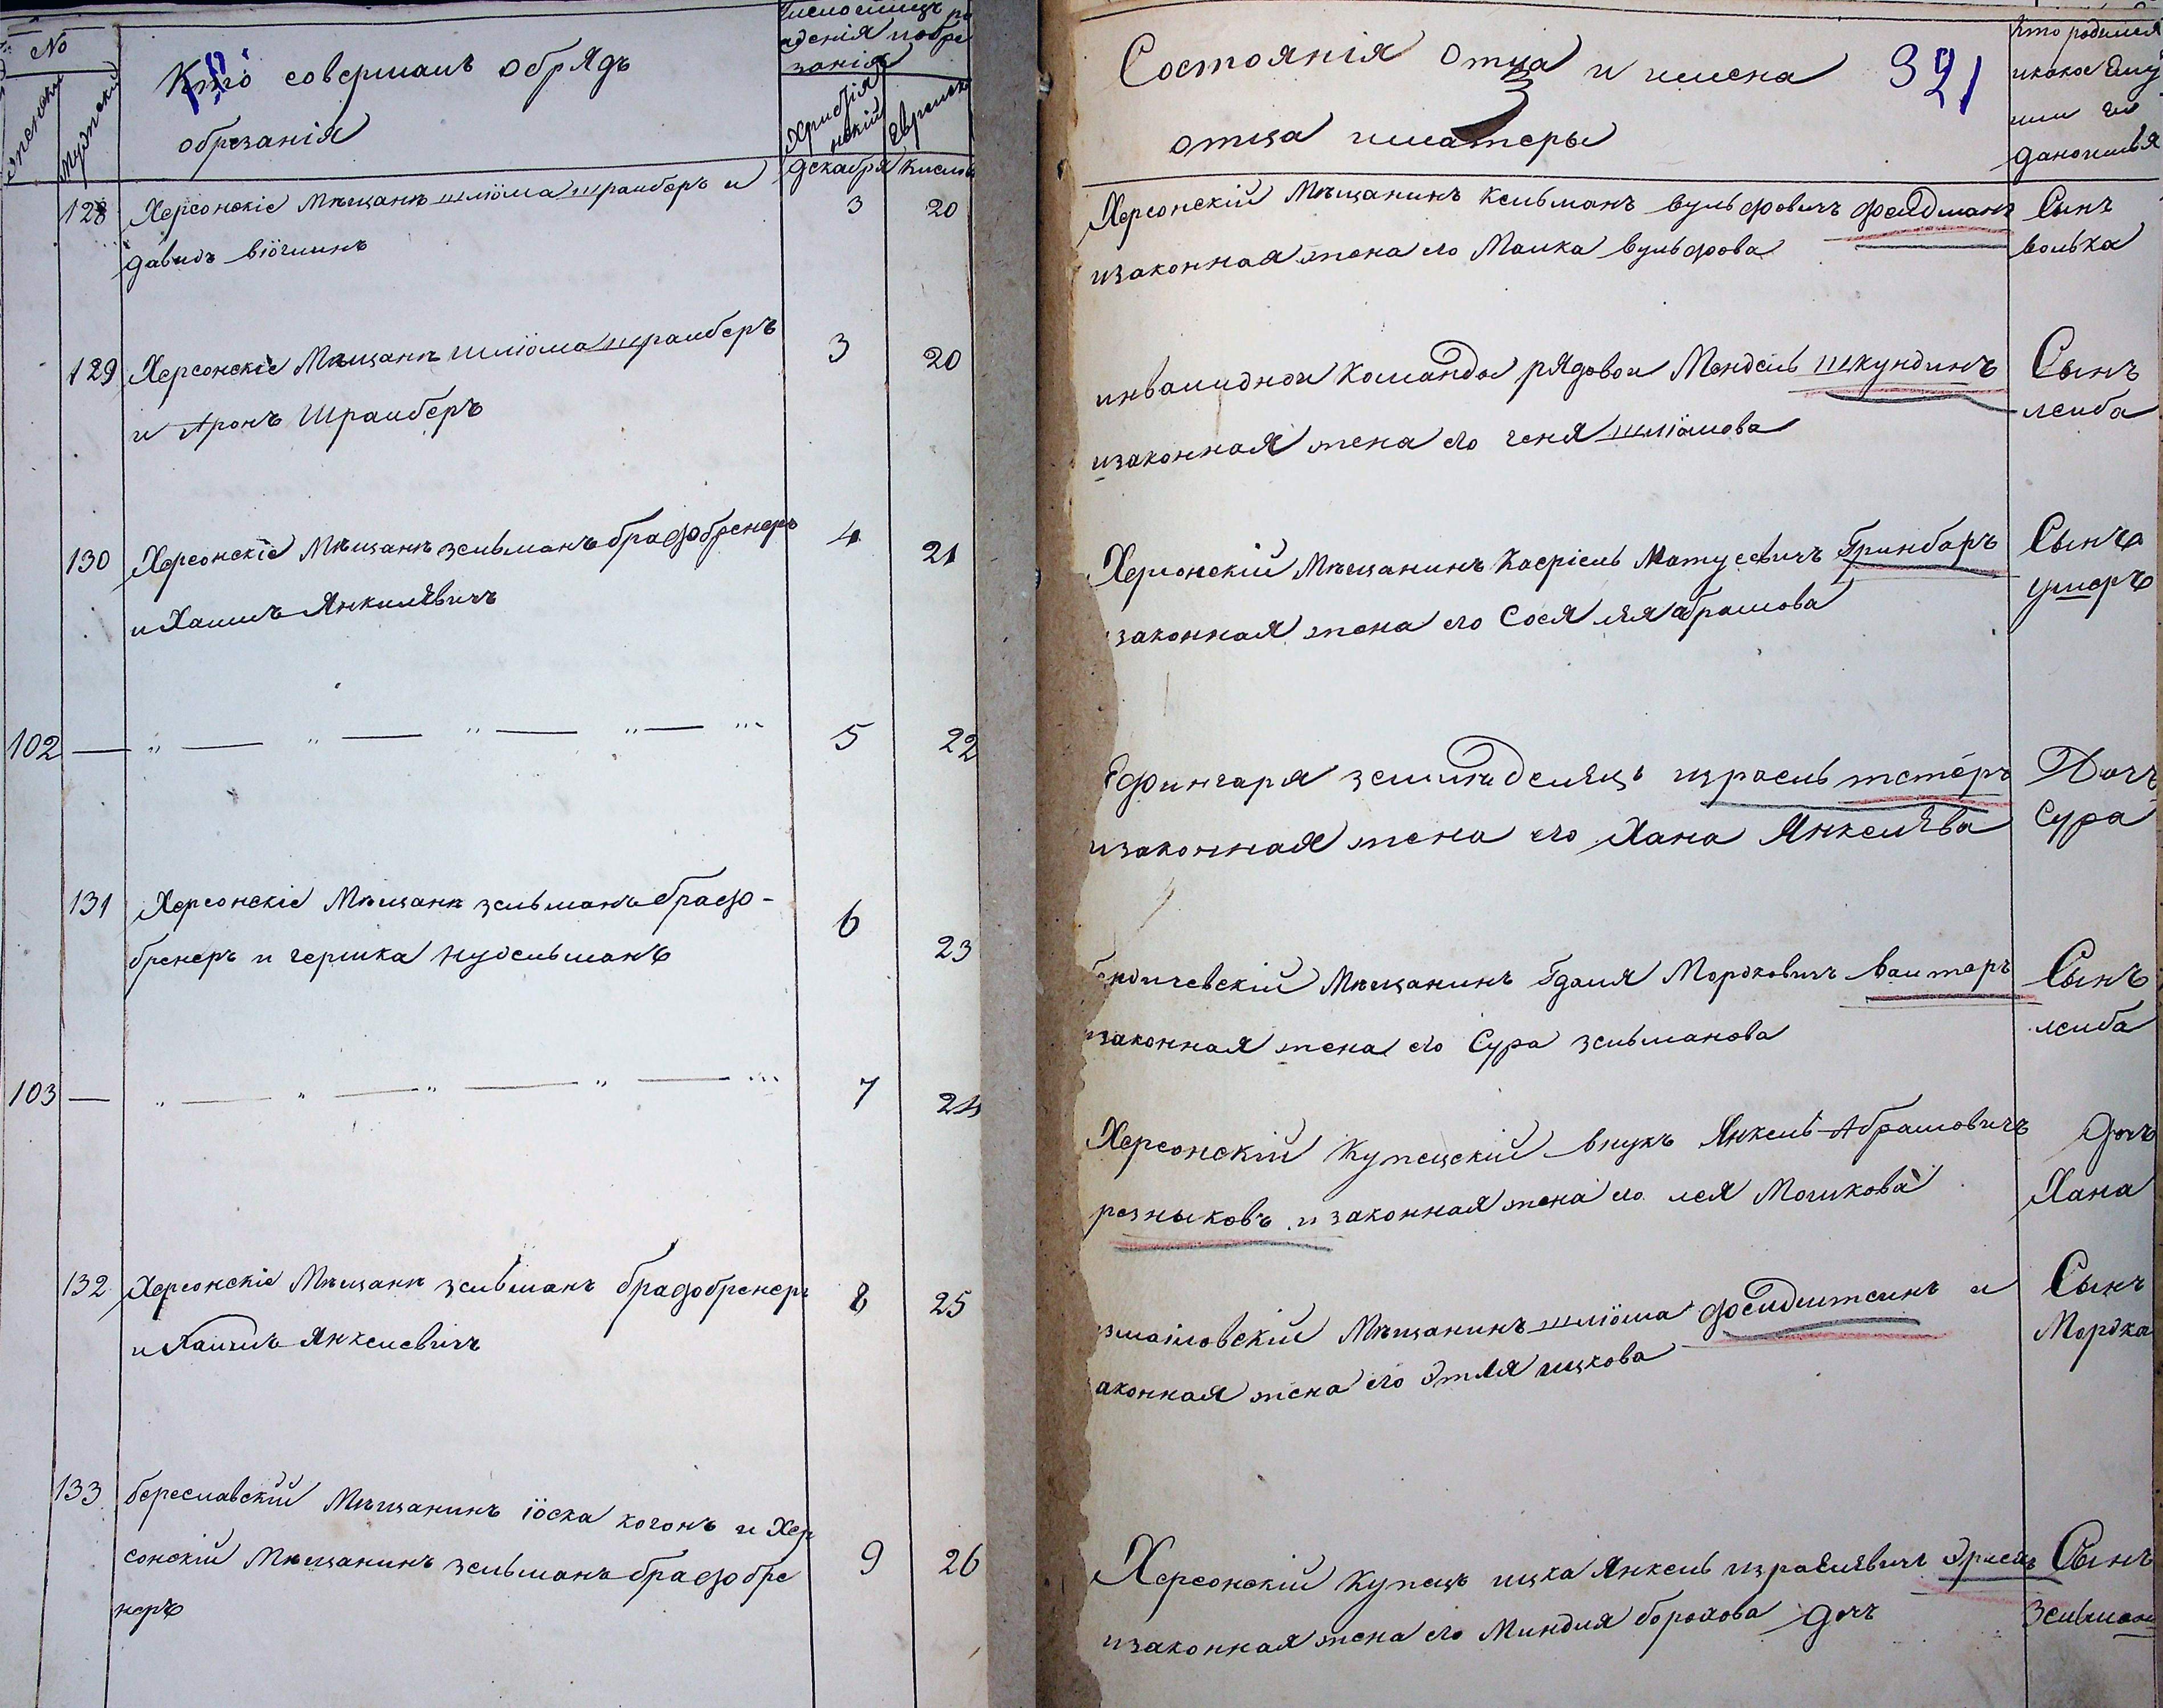 №
Женскій
Мужпскій
Кто совершалъ обрядъ
обрезанія
Число имцъ ро
жденія иобре
занія
Христія
нскій
Еврейск
декабря Кислв
128 Херсонскіе Мѣщанѣ шлiома шрайберъ и 3 20
давидъ віочлинъ
129 Херсонскіе Мѣщанѣ шлiома шрайберъ 3 20
и Аронъ Шрайберъ
130 Херсонскіе Мѣщанѣ зельманъ брафбренеръ 4 21
и Хаимъ Янкилевичъ
102 — „ — „ — „ — „ — „ 5 22
131 Херсонскіе Мѣщанѣ зельманъ брафо-
бренеръ и гершка нудельманъ 6 23
103 — „ — „ — „ — „ — „ 7 24
132 Херсонскіе Мѣщанѣ зельманъ брафобренеръ 8 25
и Хаимъ Янкелевичъ
133 береславскій Мѣщанинъ іоска когонъ и Хер
сонскій Мѣщанинъ зельманъ брафобре 9 26
неръ
Состоянія отца и имена 321
отца иматеры
Кто родился
икакое ему
или ей
дано имя
Херсонскій Мѣщанинъ Кельманъ вульфовичъ фельдманъ Сынъ
изаконная жена его Малка вульфова волька
инвалидной Команды рядовой Мендель шкундинъ Сынъ
изаконная жена его геня шлiомова лейба
Херсонскій Мѣщанинъ Касріель Матусевичъ Гринбаръ Сынъ
законная жена его Сося лея абрамова умеръ
Ефингаря земледелецъ израель тетеръ Дочь
изаконная жена его Хана Янкелева Сура
ендичевскій Мѣщанинъ Гдаля Мордковичъ вайтеръ Сынъ
изаконная жена его Сура зельманова лейба
Херсонскій Купецскій внукъ Янкель Абрамовичъ дочь
резныковъ и законная жена его лея Мошкова Хана
змаиловскій Мѣщанинъ шлiома фельдштеинъ и Сынъ
аконная жена его Этля ицкова Мордка
Херсонскій Купецъ ицка Янкель израелевичъ Эрлехъ Сынъ
изаконная жена его Миндля борохова дочь Зельман